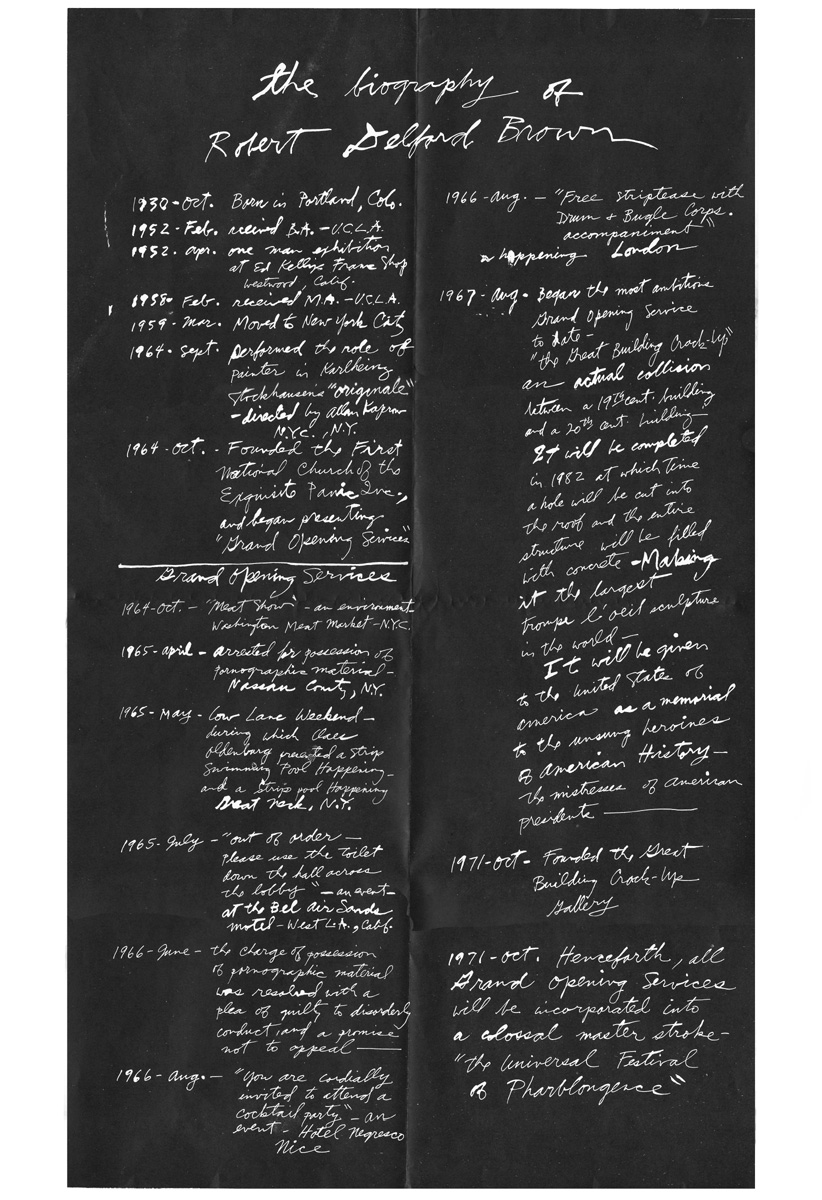 the biography of
Robert Delford Brown
1930-Oct. Born in Portland, Colo.
1952-Feb. recieved B.A. - U.C.L.A.
1952. apr. one man exhibition
at Ed Kelly's Frame Shop
Westwood, Calif.
1958- Feb. received M.A. - U.C.L.A.
1959 - Mar. Moved to New York City
1964. sept. performed the role of
painter in Karlheinz
Stockhausen's "originale"
- directed by Allan Kaprow
N.Y.C., N.Y.
1964-Oct. - Founded the First
National Church of the
Exquisite Panic Inc.,
and began presenting
"Grand Opening Services"
Grand Opening Services
1964-Oct. - "Meat Show" - an environment
Washington Meat Market - N.Y.C.
1965-april - arrested for possession of
pornographic material -
Nassau County, N.Y.
1965- May - Low Lane Weekend -
during which Claes
oldenburg presented a Strip
Swimming Pool Happening -
and a Strip pool Happening
Great Neck, N.Y.
1965- July - "out of order -
please use the toilet
down the hall across
the lobby" - an event -
at the Bel Air Sands
motel - West L.A., Calif.
1966 - June - the charge of possession
of pornographic material
was resolved with a
plea of guilty to disorderly
conduct and a promise
not to appeal -
1966 - aug. - "You are cordially
invited to attend a
cocktail party" - an
event - Hotel Negresco
Nice
1966 - aug. - "Free Striptease with
Drum & Bugle Corps.
accompaniment"
a happening London
1967 - aug. Began the most ambitious
Grand Opening Service
to date -
"the Great Building Crack-Up"
an actual collision
between a 19th cent. building
and a 20th cent. building -
It will be completed
in 1982 at which time
a hole will be cut into
the roof and the entire
structure will be filled
with concrete - Making
it the largest
trompe l'oeil sculpture
in the world -
It will be given
to the United States of
america as a memorial
to the unsung heroines
of American History -
the mistresses of american
presidents -
1971-Oct - Founded the Great
Building Crack-Up
Gallery
1971-oct. Henceforth, all
Grand Opening Services
will be incorporated into
a colossal master stroke -
"the Universal Festival
of Pharblongence"